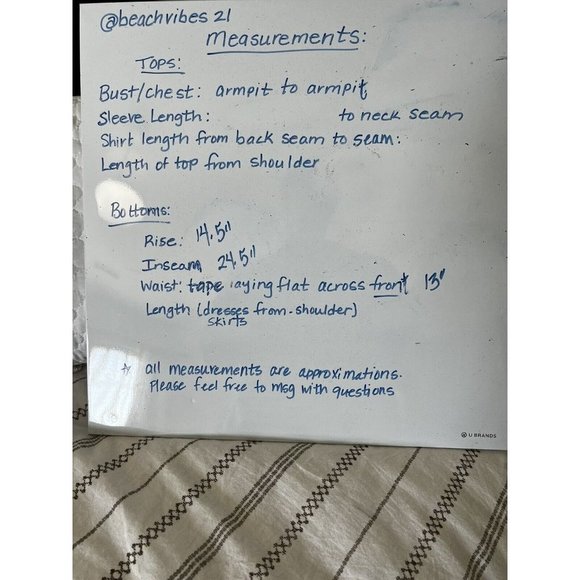 @beachvibes 21
Measurements:
TOPS:
Bust/chest: armpit to armpit
Sleeve Length: to neck seam
Shirt length from back seam to seam:
Length of top from shoulder
Bottoms:
Rise: 14.5"
Inseam 24.5"
Waist: tape laying flat across front 13"
Length (dresses from-shoulder)
skirts
☆ all measurements are approximations.
Please feel free to msg with questions
U BRANDS